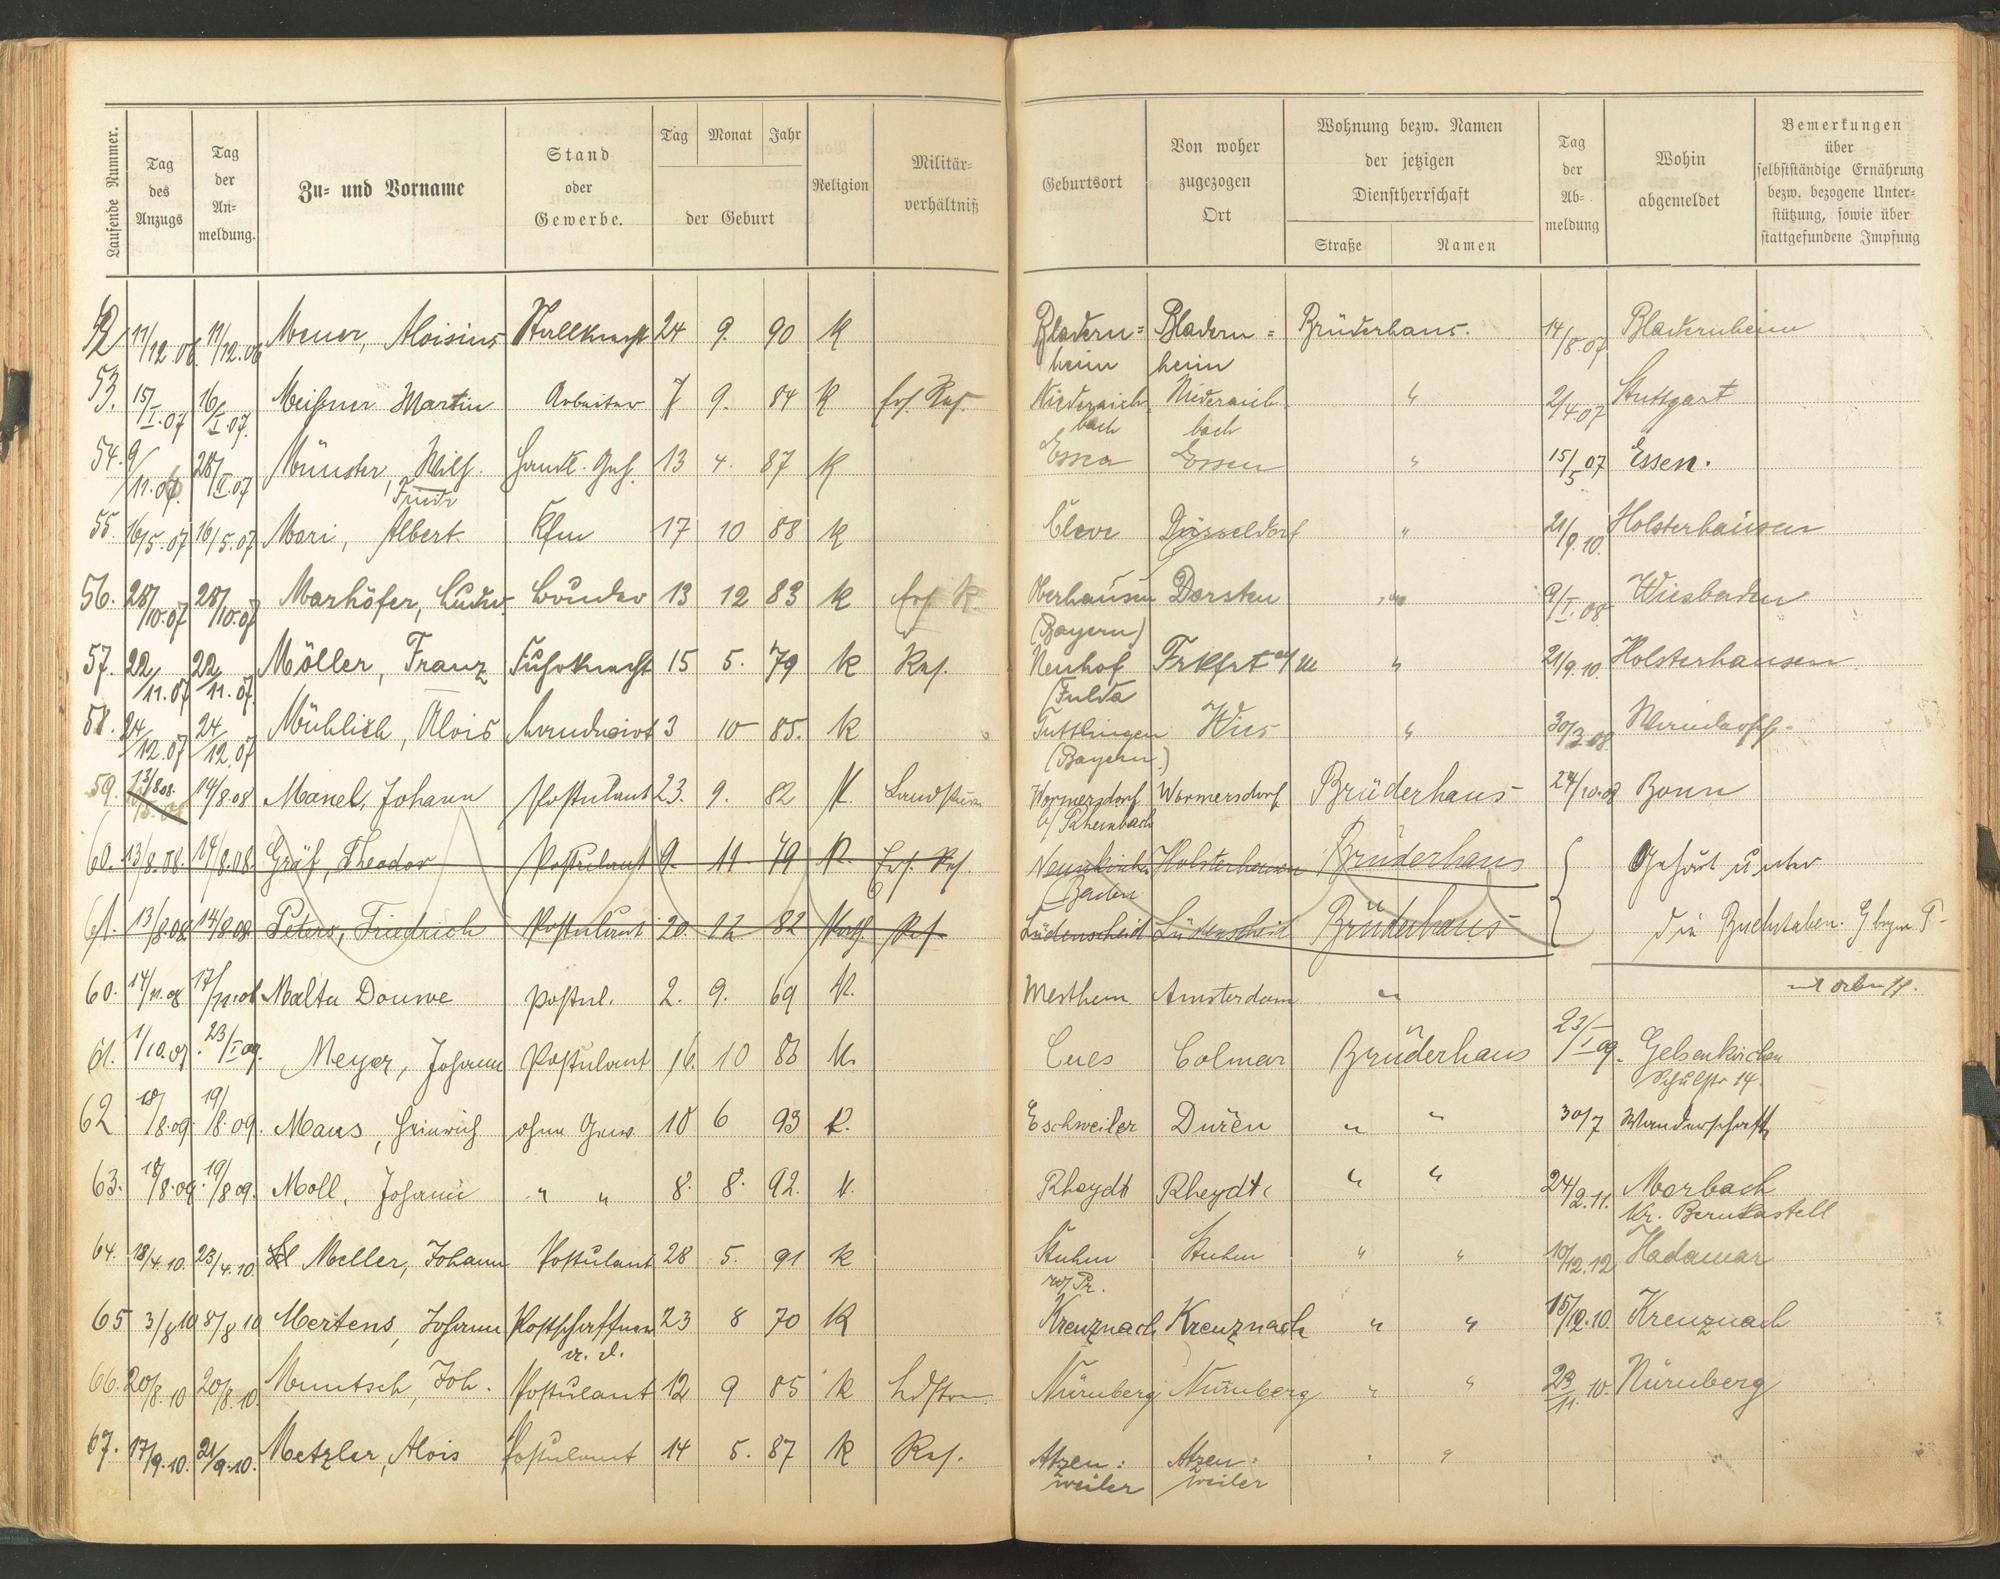 Laufende Nummer.
Tag des Anzugs
Tag der Anmeldung.
Zu- und Vorname
Stand oder Gewerbe.
Tag Monat Jahr
der Geburt
Religion
Militär-verhältniß
Geburtsort
Von woher zugezogen Ort
Wohnung bezw. Namen der jetzigen Dienstherrschaft
Straße Namen
Tag der Ab-meldung
Wohin abgemeldet
Bemerkungen über selbstständige Ernährung bezw. bezogene Unter-stützung, sowie über stattgefundene Impfung
52 11/12.06 11/12.06 Meuer, Aloisius Stallknecht 24 9. 90 K Bladern= Bladern= Brüderhaus. 14/8.07 Bladernheim
heim heim
53. 15/I.07 16/I.07. Meißner Martin Arbeiter 7 9. 84 K Ers. Res. Niederaich Niederaich " 2/4 07 Stuttgart
bach bach
54. 9/11.06. 28/II.07 Münster, Wilh. Handl. Geh. 13 4. 87 K Essen Essen " 15/5 07 Essen.
Friedr
55. 16/5.07 16/5.07 Mori, Albert Kfm 17 10 88 K Cleve Düsseldorf " 21/9.10. Holsterhausen
56. 28/10.07 28/10.07 Marhöfer, Ludw 13 12 83 K Ers R. Oberhausen Dorsten " 9/I.08. Wiesbaden
(Bayern)
57. 22/11.07 22/11.07. Möller, Franz Fuhrknecht 15 5. 79 K Res. Neuhof Frkfrt a/M " 21/9.10. Holsterhausen
(Fulda
58. 24/12.07 24/12.07 Mühlich, Alois Landwirt 3 10 85. K Tuttlingen Wies " 30/3 08
(Bayern)
59. 13/8 08. 14/8.08 Manel, Johann Postulant 23. 9. 82 K. Landsturm Wormersdorf Wormersdorf Brüderhaus 24/10.08 Bonn
b/ Rheinbach
60. 13/8.08. 14/8.08. Gräf, Theodor Postulant 9. 11. 79 K. Ers. Res. Neunkirchen Holsterhausen Brüderhaus Gehört unter
Baden
61. 13/8.08 14/8.08 Peters, Friedrich Postulant 20. 12 82 Kath. Res. Lüdenscheid Lüdenscheid Brüderhaus die Buchstaben. G bezw. P-
60. 14/11.08 17/11.08 Malta Douwe Postul. 2. 9. 69 K. Amsterdam "
61. 1/10.07 23/I 09. Meyer, Johann Postulant 16. 10 86 K. Cues Colmar Brüderhaus 23/I 09. Gelsenkirchen
Schulstr 14.
62 18/8.09 19/8.09. Maus, Heinrich ohne Gew. 18 6 93 K. Eschweiler Düren " " 30/7 Wanderschaft
63. 18/8.09 19/8 09. Moll, Johann " " 8. 8. 92. K. Rheydt Rheydt " " 24/2.11. Morbach
Kr. Bernkastell
64. 18/4.10. 23/4.10. Meller, Johann Postulant 28 5. 91 K Stuhm Stuhm " " 10/12.12 Hadamar
W/Pr.
65 3/8 10 8/8 10 Mertens, Johann Postschaffner 23 8 70 K Kreuznach Kreuznach " " 15/12.10. Kreuznach
a. D.
66. 20/8.10 20/8.10. Muntsch, Joh. Postulant 12 9 85 K Ldstrm Nürnberg Nürnberg " " 23/11. 10. Nürnberg
67. 17/9.10. 21/9.10. Metzler, Alois Postulant 14 5. 87 K Res. Atzen= Atzen= " "
weiler weiler